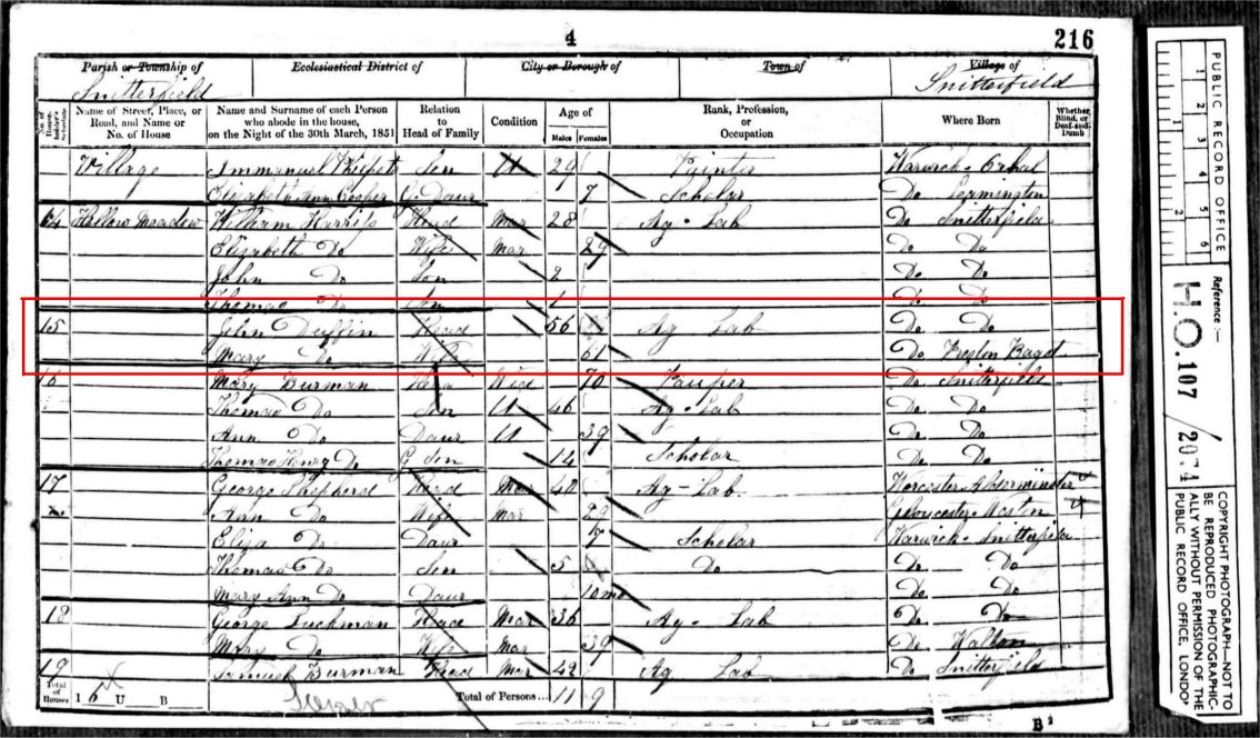 4
216
Parish or Township of Ecclesiastical District of City or Borough of Town of Village of
Snitterfield Snitterfield
No. of House-holder's Schedule Name of Street, Place, or Road, and Name or No. of House Name and Surname of each Person who abode in the house, on the Night of the 30th March, 1851 Relation to Head of Family Condition Age of Males Females Rank, Profession, or Occupation Where Born Whether Blind, or Deaf-and-Dumb
Village Immanuel Son U 29 Painter Warwick
Elizabeth Ann Cooper G Daur 7 Scholar Do Leamington
William Harriss Head Mar 28 Ag. Lab Do Snitterfield
Elizabeth Do Wife Mar 29 Do Do
John Do Son 2 Do Do
Thomas Do Son 1 Do Do
15 John Duffin Head 56 Ag Lab Do Do
Mary Do Wife 61 Do
16 Mary Burman Wid 70 Pauper Do Snitterfield
Thomas Do Son U 46 Ag. Lab Do Do
Ann Do Daur U 39 Do Do
Thomas Henry Do G Son 14 Scholar Do Do
17 George Shepherd Head Mar 40 Ag-Lab Worcester
Ann Do Wife Mar 29 Gloucester
Eliza Do Daur 7 Scholar Warwick Snitterfield
Thomas Do Son 5 Do Do Do
Mary Ann Do Daur 10 mo Do Do
18 George Luckman Head Mar 36 Ag. Lab Do Do
Mary Do Wife Mar 39 Do Walton
19 Samuel Burman Head Mar 42 Ag Lab Do Snitterfield
Total of Houses 1 6 U B Total of Persons... 11 9
B
PUBLIC RECORD OFFICE
1 2 3 4 5 6
1 2
Reference :-
H.O. 107 / 2074
COPYRIGHT PHOTOGRAPH—NOT TO
BE REPRODUCED PHOTOGRAPHIC-
ALLY WITHOUT PERMISSION OF THE
PUBLIC RECORD OFFICE, LONDON